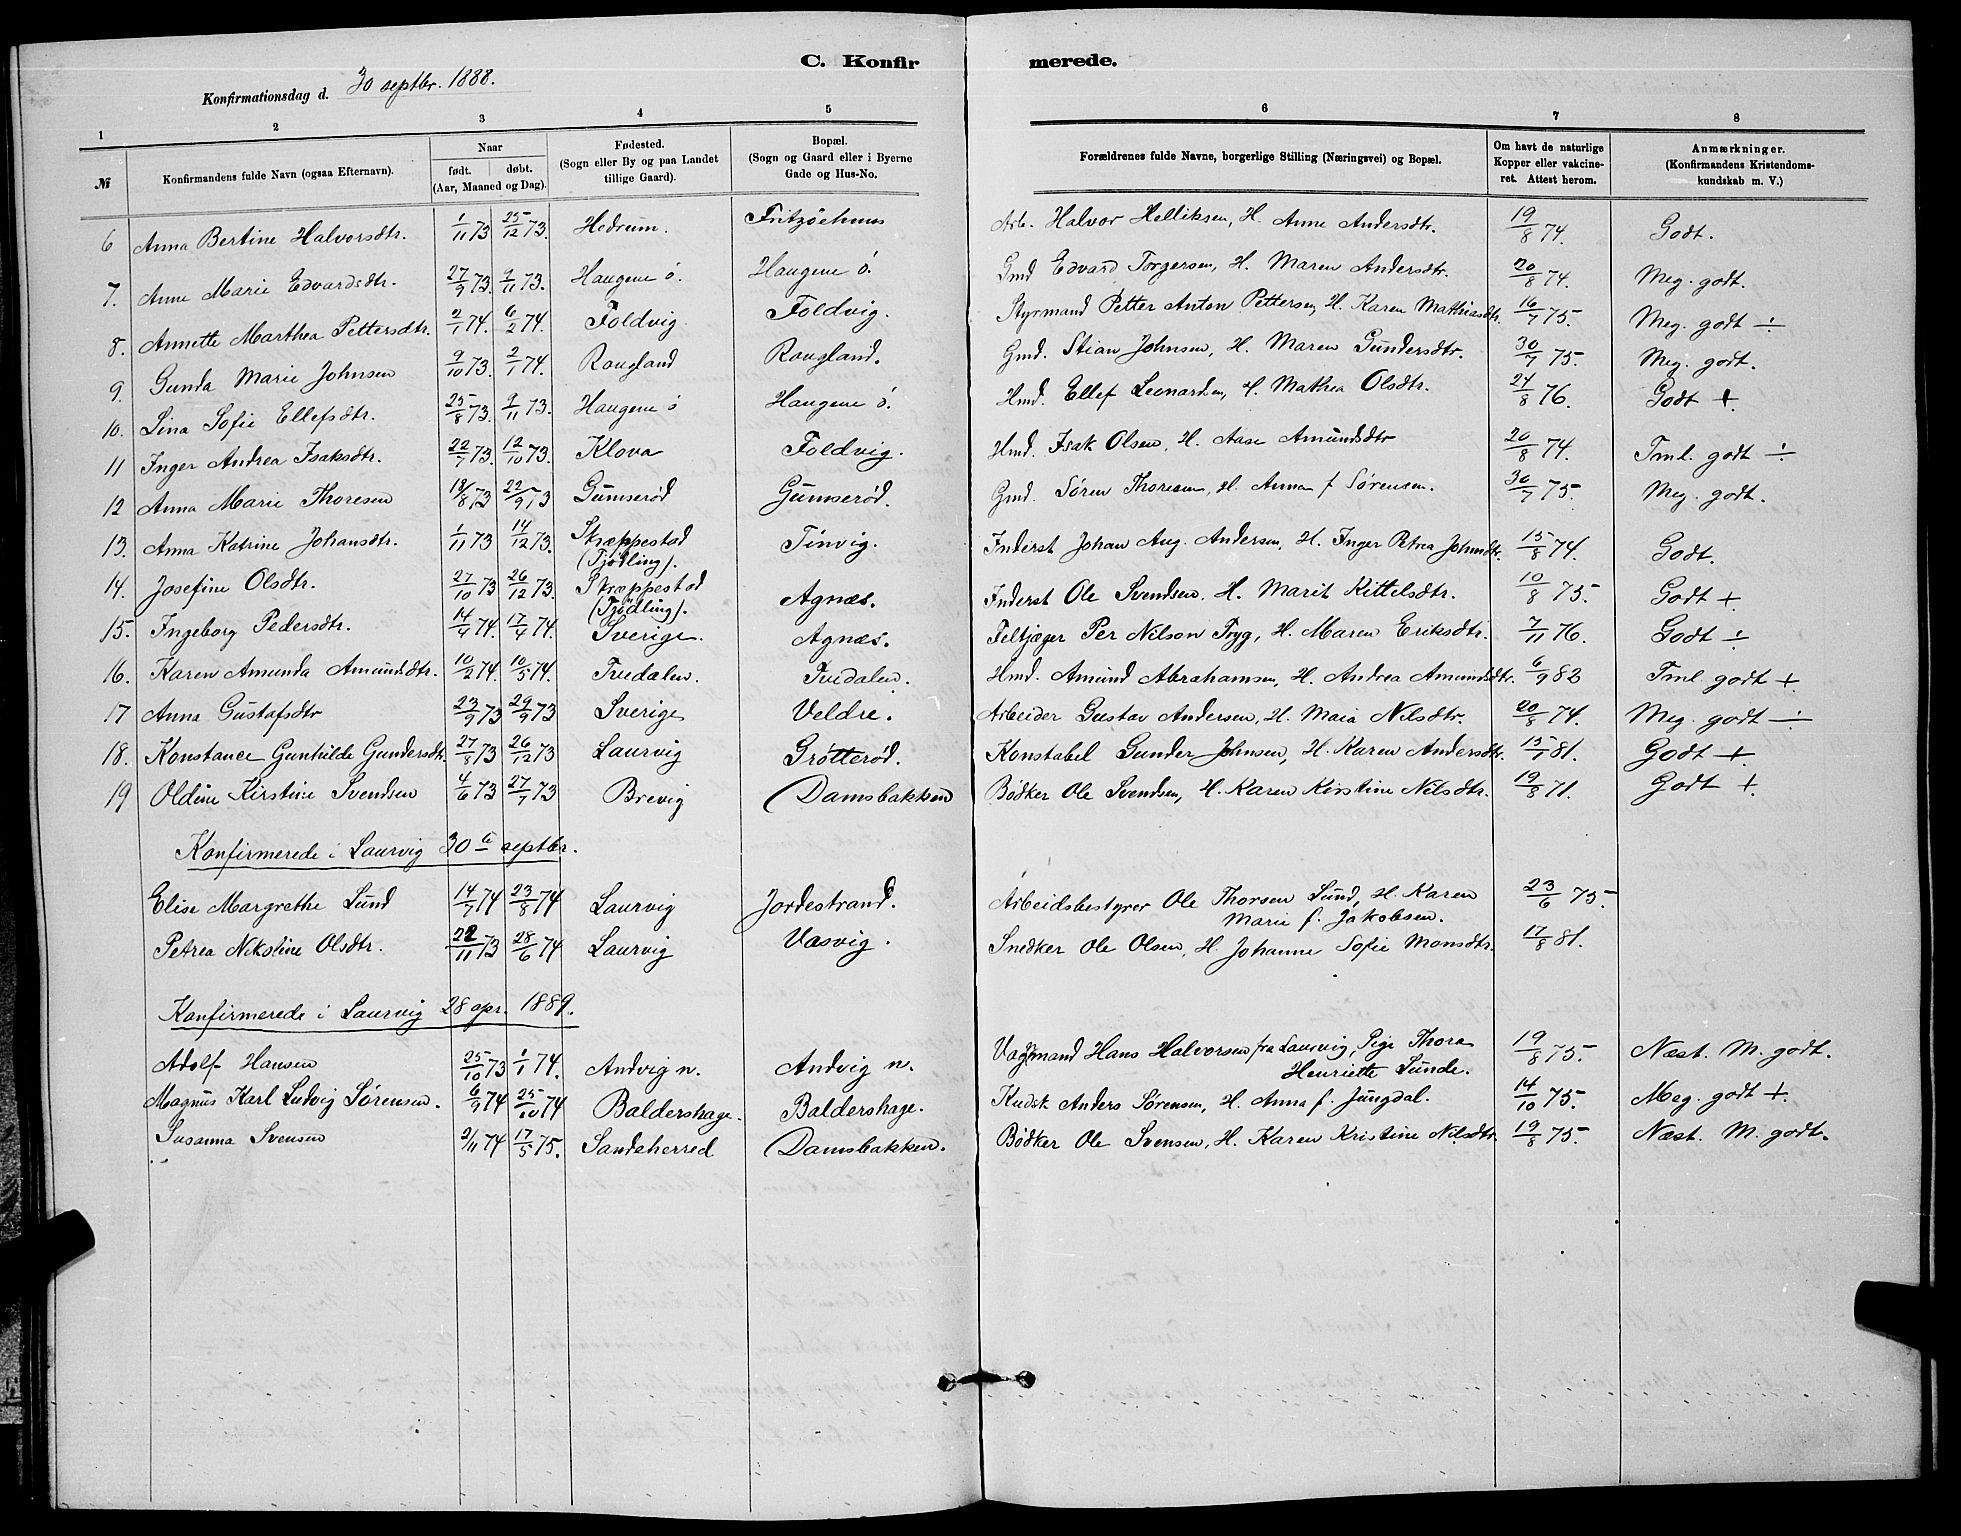 C. Konfirmerede.
Konfirmationsdag d. 30 septbr. 1888.
1 2 3 4 5 6 7 8
№ Konfirmandens fulde Navn (ogsaa Efternavn). Naar født. døbt. (Aar, Maaned og Dag). Fødested. (Sogn eller By og paa Landet tillige Gaard). Bopæl. (Sogn og Gaard eller i Byerne Gade og Hus-No. Forældrenes fulde Navne, borgerlige Stilling (Næringsvei) og Bopæl. Om havt de naturlige Kopper eller vakcineret. Attest herom. Anmærkninger. (Konfirmandens Kristendomskundskab m. V.)
6 Anna Bertine Halvorsdtr. 1/11 73 25/12 73. Hedrum. Fritzöehuus Arb. Halvor Helliksen, H. Anne Andersdtr. 19/8 74. Godt.
7. Anne Marie Edvardsdtr. 27/9 73. 9/11 73. Haugene ö. Haugene ö. Gmd Edvard Torgersen, H. Maren Andersdtr. 20/8 74. Meg. godt.
8. Annette Marthea Pettersdtr. 2/1 74. 6/2 74. Foldvig. Foldvig. Styrmand Petter Anton Pettersen, H. Karen Mathiasdtr. 16/7 75. Meg. godt ÷
9. Gunda Marie Johnsen 9/10 73. 2/1 74. Rougland Rougland. Gmd. Stian Johnsen, H. Maren Gundersdtr. 30/7 75. Meg. godt.
10. Lina Sofie Ellefsdtr. 25/8 73. 9/11 73. Haugene ö Haugene ö. Hmd. Ellef Leonardsen, H. Mathea Olsdtr. 24/8 76. Godt +.
11 Inger Andrea Isaksdtr. 22/7 73. 12/10 73. Klova Foldvig. Hmd. Isak Olsen, H. Aase Amundsdtr 20/8 74. Tml. godt ÷
12 Anna Marie Thoresen 18/8 73 22/9 73 Gumserød Gumserød. Gmd. Sören Thoresen, H. Anna f Sörensen. 30/7 75. Meg. godt.
13. Anna Katrine Johansdtr. 1/11 73 14/12 73. Skræppestad (Tjödling). Tinvig. Inderst Johan Aug. Andersen, H. Inger Petrea Johnsdtr. 15/8 74. Godt.
14. Josefine Olsdtr. 27/10 73 26/12 73. Skræppestad (Tjödling). Agnæs. Inderst Ole Svendsen. H. Marit Kittelsdtr. 10/8 75. Godt +
15. Ingeborg Pedersdtr. 14/4 74. 17/4 74. Sverige. Agnæs. Feltjæger Per Nilson Tryg, H. Maren Eriksdtr. 7/11 76. Godt ÷
16. Karen Amunda Amundsdtr. 10/2 74. 10/5 74. Tvedalen. Tvedalen. Hmd. Amund Abrahamsen, H. Andrea Amundsdtr. 6/9 82 Tml godt +.
17 Anna Gustafsdtr 23/9 73 29/9 73 Sverige Veldre. Arbeider Gustav Andersen, H. Maia Nilsdtr. 20/8 74. Meg. godt ÷
18. Konstance Gunhilde Gundersdtr. 27/8 73 26/12 73 Laurvig Grötteröd. Konstabel Gunder Johnsen, H. Karen Andersdtr. 15/1 81. Godt +
19 Oldine Kirstine Svendsen 4/6 73 27/7 73 Brevig Damsbakken Bødker Ole Svendsen, H. Karen Kirstine Nilsdtr. 19/8 71. Godt +.
Konfirmerede i Laurvig 30te septbr.
Elise Margrethe Lund 14/7 74 23/8 74 Laurvig Jordestrand. Arbeidsbestyrer Ole Thorsen Lund, H. Karen 23/6 75.
Marie f. Jakobsen.
Petrea Nikoline Olsdtr. 22/11 73 28/6 74 Laurvig Vasvig. Snedker Ole Olsen, H. Johanne Sofie Monsdtr. 17/8 81.
Konfirmerede i Laurvig 28 apr. 1889.
Adolf Hansen 25/10 73 1/1 74. Andvig n. Andvig n. Vagtmand Hans Halvorsen fra Laurvig, Pige Thora 19/8 75. Næst. M. godt.
Henriette Lunde.
Magnus Karl Ludvig Sørensen. 6/9 74 25/10 74 Baldershage. Baldershage. Kudsk Anders Sørensen, H. Anna f. Jungdal. 14/10 75. Meg. godt +.
Susanna Svensen 2/11 74 17/5 75. Sandeherred Damsbakken. Bødker Ole Svensen, H. Karen Kristine Nilsdtr. 19/8 75. Næst. M. godt.